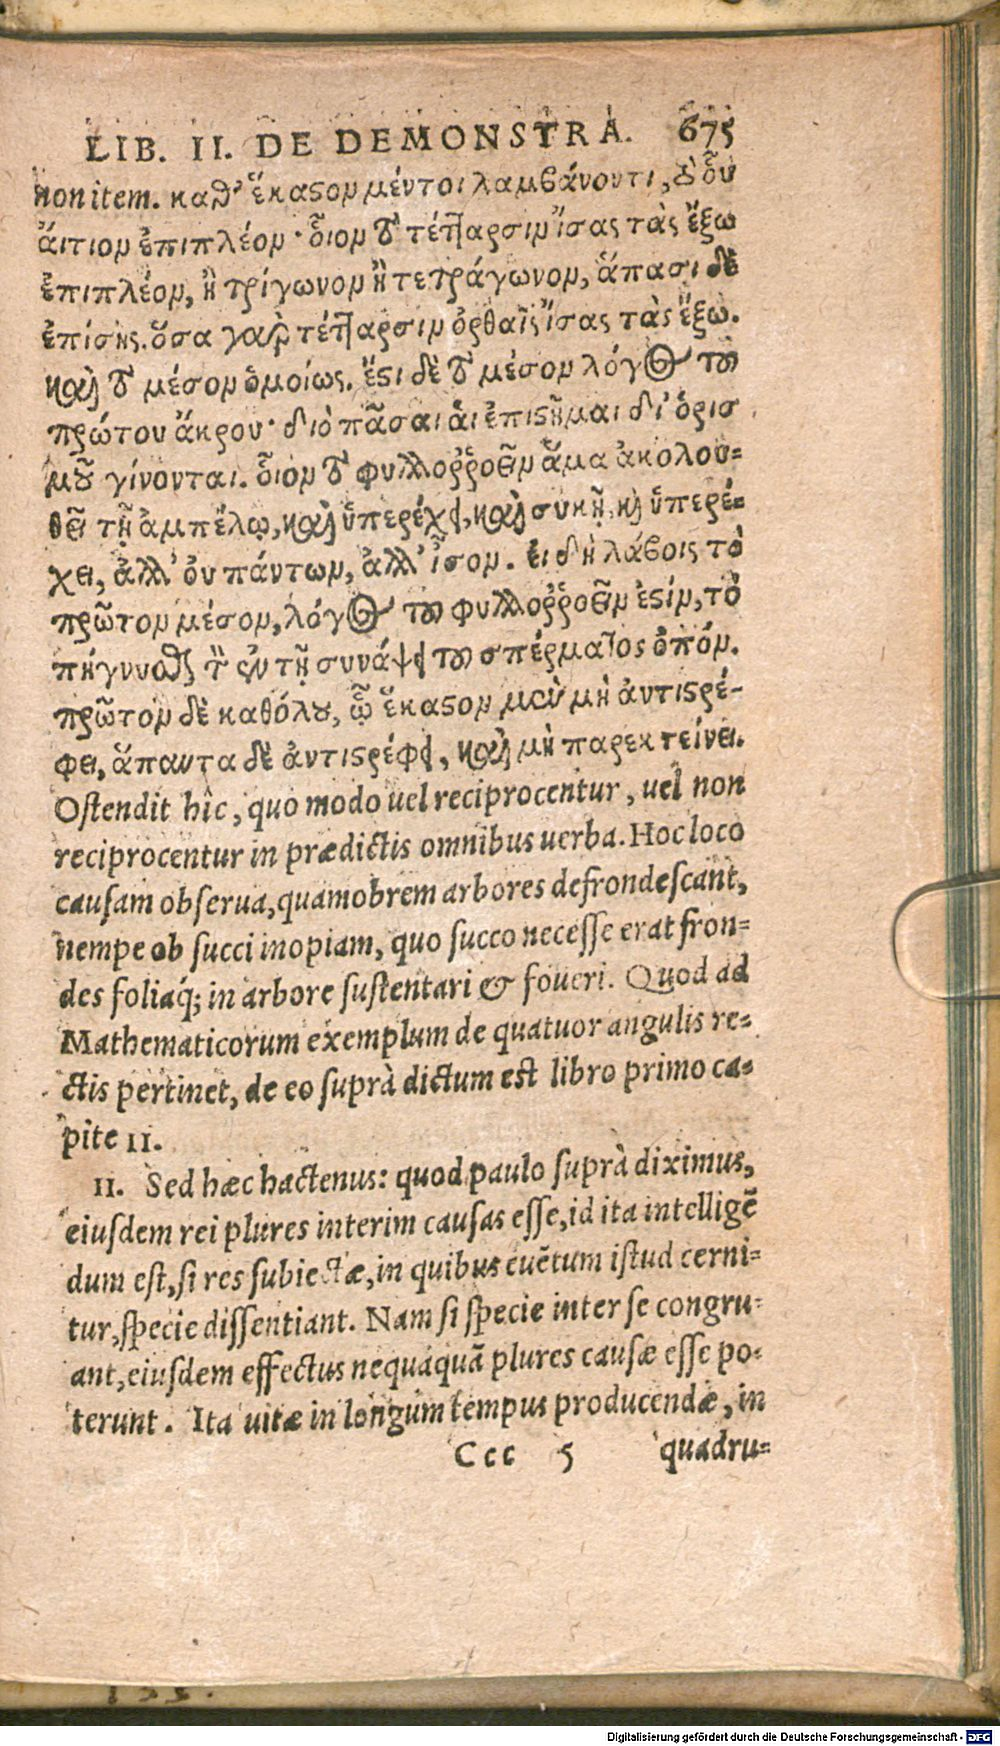 LIB. II. DE DEMONSTRA. 675
non item. καθ' ἕκαστον μέντοι λαμβάνοντι, οὗ οὖν
αἴτιον ἐπιπλέον· οἷον τὸ τέτταρσιν ἴσας τὰς ἔξω
ἐπιπλέον, ἢ τρίγωνον ἢ τετράγωνον, ἅπασι δὲ
ἐπίσης. ὅσα γὰρ τέτταρσιν ὀρθαῖς ἴσας τὰς ἔξω.
καὶ τὸ μέσον ὁμοίως. ἔστι δὲ τὸ μέσον λόγος τοῦ
πρώτου ἄκρου· διὸ πᾶσαι αἱ ἐπιστῆμαι δι' ὁρισ
μοῦ γίνονται. οἷον τὸ φυλλοῤῥοεῖν ἅμα ἀκολου-
θεῖ τῇ ἀμπέλῳ, καὶ ὑπερέχει, καὶ συκῇ, καὶ ὑπερέ-
χει, ἀλλ' οὐ πάντων, ἀλλ' ἴσον. εἰ δὴ λάβοις τὸ
πρῶτον μέσον, λόγος τοῦ φυλλοῤῥοεῖν ἐστίν, τὸ
πήγνυσθαι τὸν ἐν τῇ συνάψει τοῦ σπέρματος ὀπόν.
πρῶτον δὲ καθόλου, ᾧ ἕκαστον μὲν μὴ ἀντιστρέ-
φει, ἅπαντα δὲ ἀντιστρέφει, καὶ μὴ παρεκτείνει.
Ostendit hîc, quo modo uel reciprocentur, uel non
reciprocentur in prædictis omnibus uerba. Hoc loco
causam obserua, quamobrem arbores defrondescant,
nempe ob succi inopiam, quo succo necesse erat fron-
des foliaq́; in arbore sustentari & foueri. Quod ad
Mathematicorum exemplum de quatuor angulis re-
ctis pertinet, de eo suprà dictum est libro primo ca-
pite 11.
11. Sed hæc hactenus: quod paulo suprà diximus,
eiusdem rei plures interim causas esse, id ita intelligẽ
dum est, si res subiectæ, in quibus euẽtum istud cerni-
tur, specie dissentiant. Nam si specie inter se congru-
ant, eiusdem effectus nequaquã plures causæ esse po-
terunt. Ita uitæ in longum tempus producendæ, in
Ccc 5 quadru-
Digitalisierung gefördert durch die Deutsche Forschungsgemeinschaft - DFG